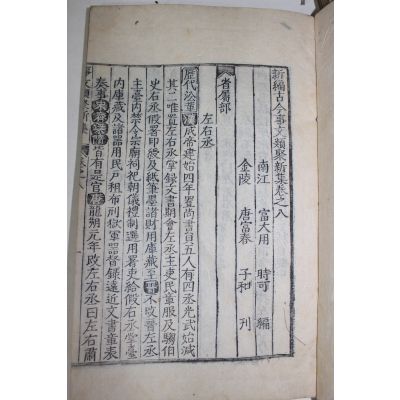 新編古今事文類聚新集卷之八
南江 富大用 時可 編
金陵 唐富春 子和 刊
省屬部
左右丞
歷代沿革 漢成帝建始四年置尚書員五人有四丞光武始減
其二唯置左右丞掌錄文書期會左丞主吏民章服及騶伯
史右丞假署印綬及紙筆墨諸財用庫藏至晉不改晉左丞
主臺内禁令宗廟祠祀朝儀禮制選用署吏給假右丞掌臺
内庫藏及諸器用民戶租布刑獄軍器督錄遠近文書章表
奏事 皆有是官唐龍朔元年改左右丞曰左右肅
事文 聚新集 卷之八